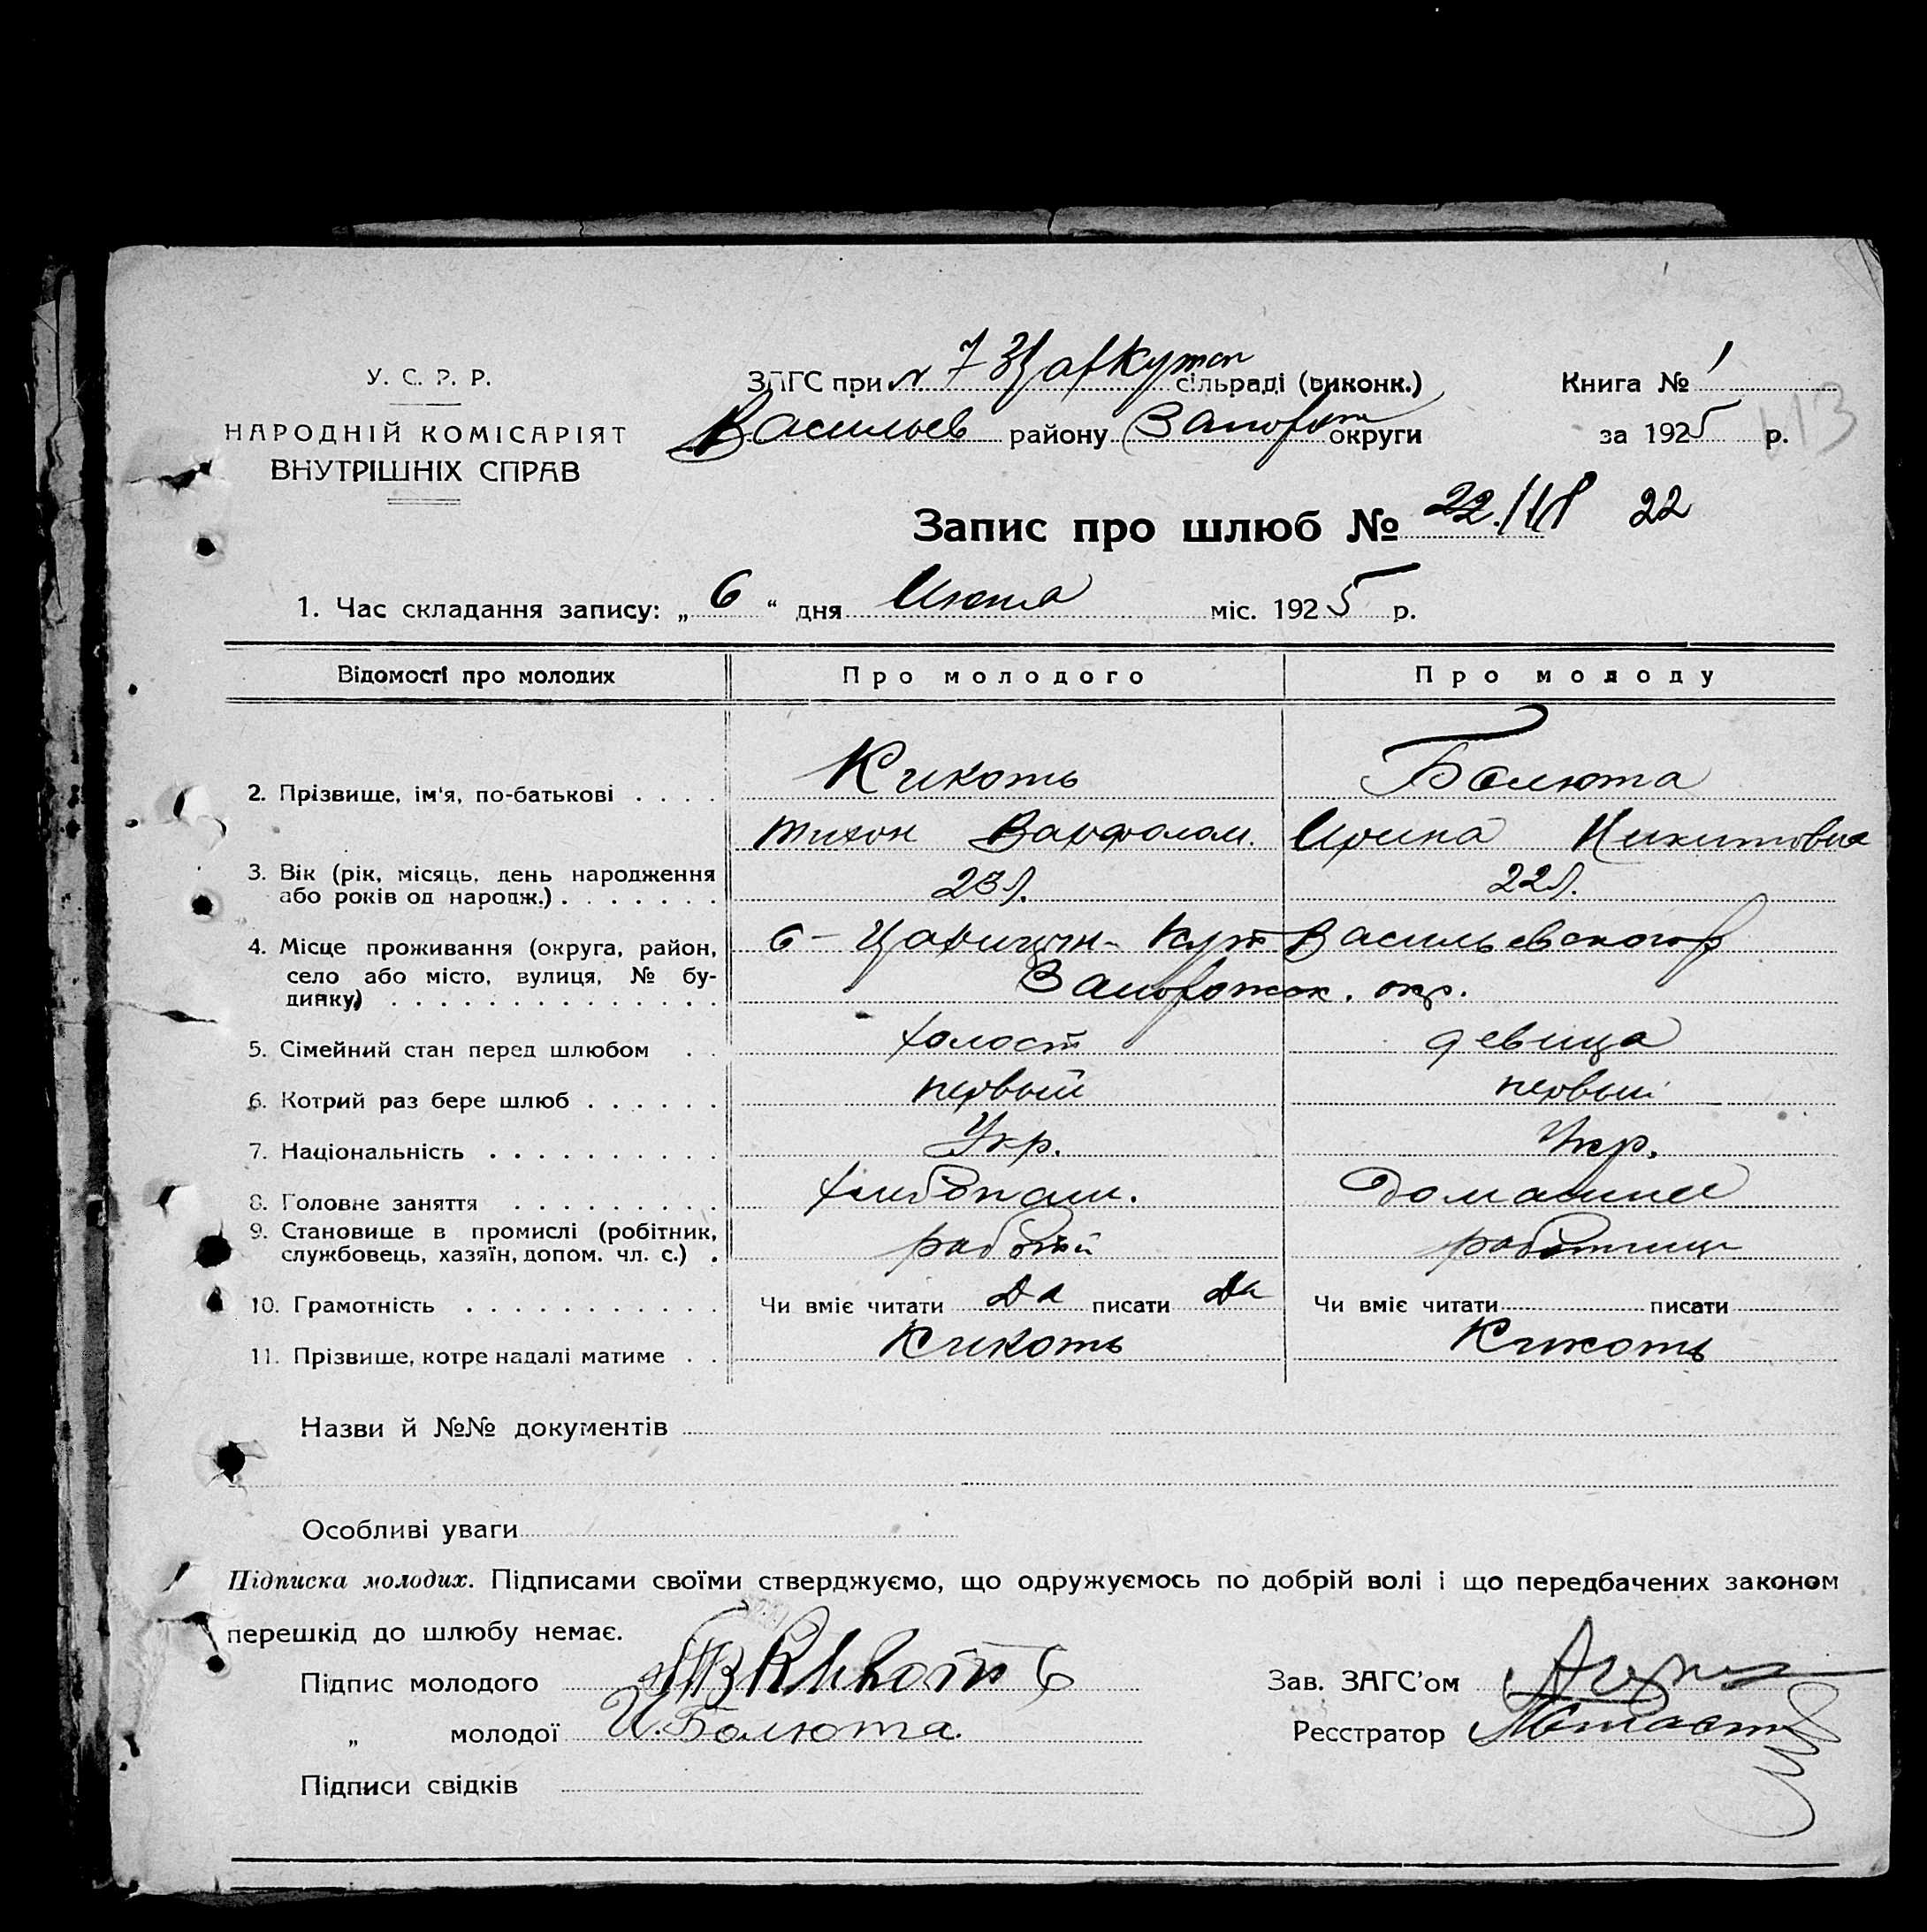 У. С. Р. Р.
НАРОДНІЙ КОМІСАРІЯТ
ВНУТРІШНІХ СПРАВ
ЗАГС при № 7 Царкутск сільраді (виконк.)
Васильев району Запорож округи
Книга № 1
за 1925 р.
113
Запис про шлюб № 22 22
1. Час складання запису: „ 6 “ дня Июня міс. 1925 р.
Відомості про молодих Про молодого Про молоду
2. Прізвище, ім'я, по-батькові . . . . Кикоть Балюта
Тихон Варфолом. Ирина Никитовна
3. Вік (рік, місяць, день народження
або років од нарощ.) . . . . . . . 23 л. 22 л.
4. Місце проживання (округа, район, с- Царицын- Кут Васильевского р
село або місто, вулиця, № бу- Запорожск. окр.
динку) . . . . . . . . . . . . . .
5. Сімейний стан перед шлюбом . . холост девица
6. Котрий раз бере шлюб . . . . . . первый первый
7. Національність . . . . . . . . . . Укр. Укр.
8. Головне заняття . . . . . . . . . хлебопаш. Домашней
9. Становище в промислі (робітник,
службовець, хазяїн, допом. чл. с.) .
10. Грамотність . . . . . . . . . . . Чи вміє читати Да писати Да Чи вміє читати писати
11. Прізвище, котре надалі матиме . . Кикоть Кикоть
Назви й №№ документів
Особливі уваги
Підписка молодих. Підписами своїми стверджуємо, що одружуємось по добрій волі і що передбачених законом
перешкід до шлюбу немає.
Підпис молодого ТВ Кикоть Зав. ЗАГС'ом
„ молодої И. Балюта. Реєстратор
Підписи свідків